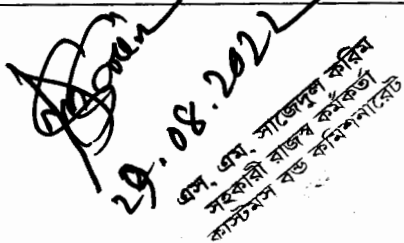 29.08.2022
এস, এম, সাজেদুল করিম
সহকারী রাজস্ব কর্মকর্তা
কাস্টমস বন্ড কমিশনারেট